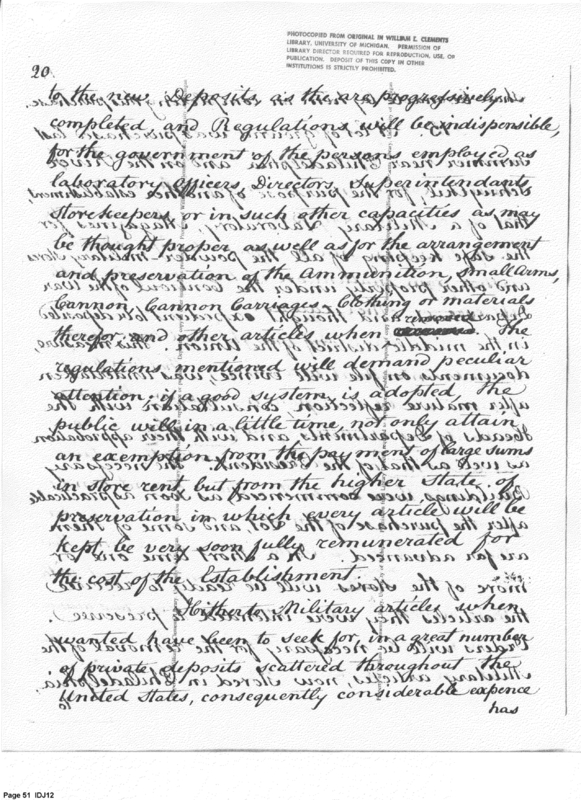 PHOTOCOPIED FROM ORIGINAL IN WILLIAM L. CLEMENTS
LIBRARY, UNIVERSITY OF MICHIGAN. PERMISSION OF
LIBRARY DIRECTOR REQUIRED FOR REPRODUCTION, USE, OR
PUBLICATION. DEPOSIT OF THIS COPY IN OTHER
INSTITUTIONS IS STRICTLY PROHIBITED.
20.
to the new Deposits, as the are progressively
completed and Regulations will be indispensible,
for the government of the persons employed as
laboratory officers, Directors, Superintendants,
Storekeepers, or in such other capacities as may
be thought proper, as well as for the arrangement
and preservation of the Ammunition, Small Arms,
Cannon, Cannon Carriages, Clothing or materials
therefor, and other articles when removed The
regulations mentioned will demand peculiar
attention; if a good system is adopted, the
public will in a little time, not only attain
an exemption from the payment of large sums
in store rent, but from the higher state of
preservation in which every article will be
kept, be very soon fully remunerated for
the cost of the Establishment.
Hitherto Military articles when
wanted have been to seek for, in a great number
of private deposits scattered throughout the
United States, consequently considerable expence
has
Page 51 IDJ12